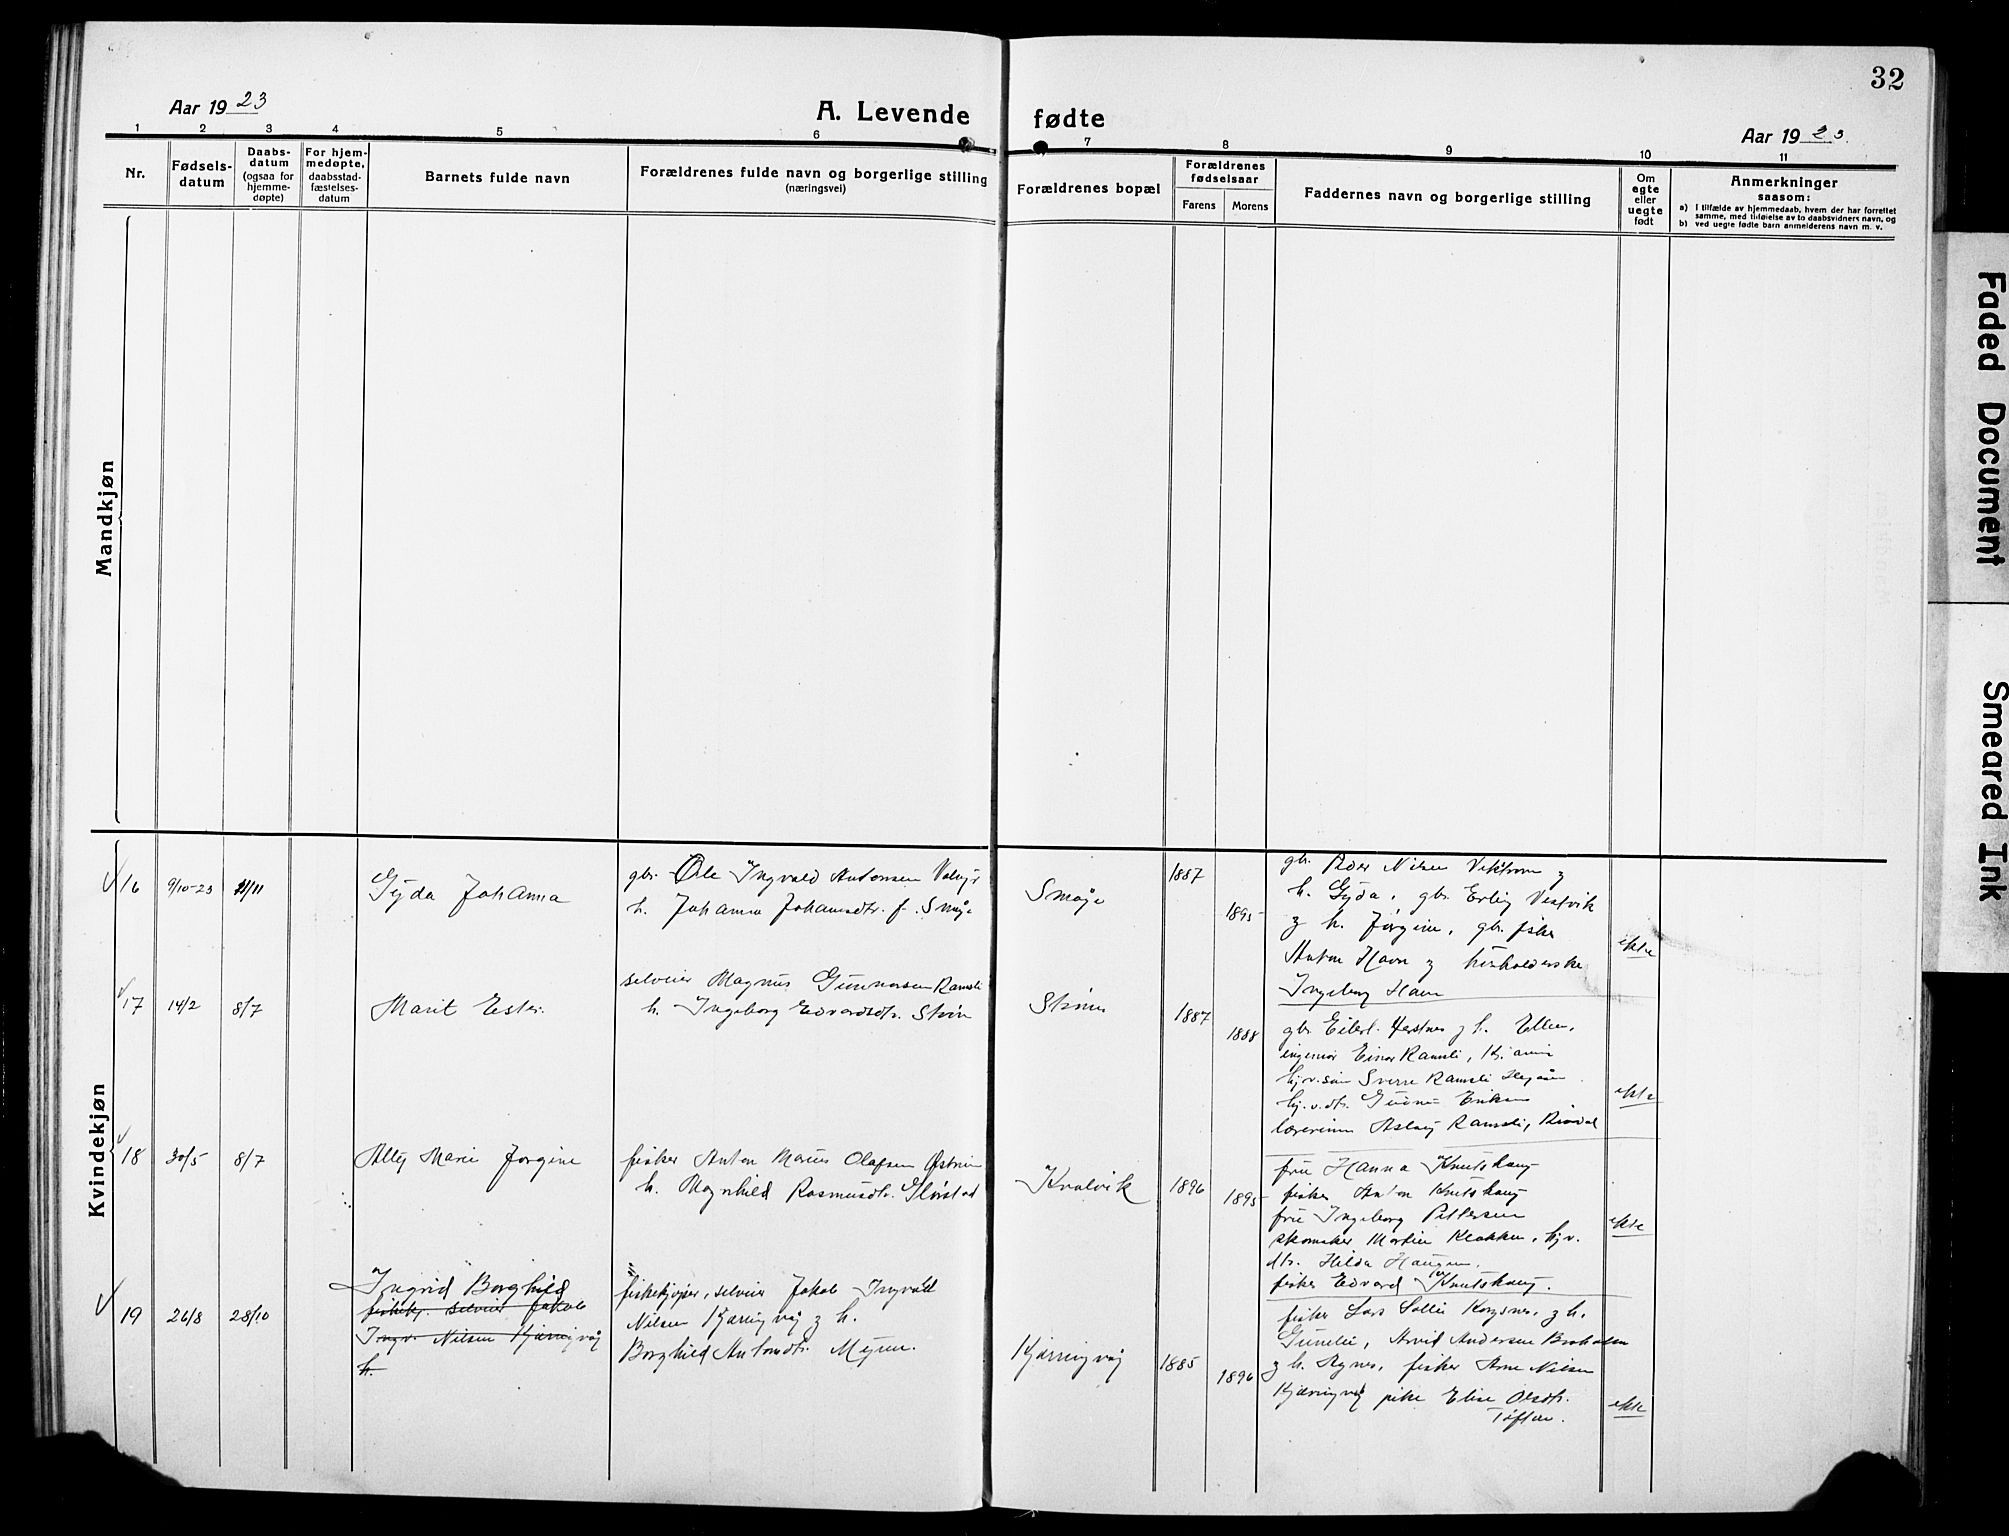 32
Aar 1923
A. Levende fødte
Aar 1923
1 2 3 4 5 6 7 8 9 10 11
Nr.
Fødsels-
datum
Daabs-
datum
(ogsaa for
hjemme-
døpte)
For hjem-
medøpte,
daabsstad-
fæstelses-
datum
Barnets fulde navn
Forældrenes fulde navn og borgerlige stilling
(næringsvei)
Forældrenes bopæl
Forældrenes
fødselsaar
Farens
Morens
Faddernes navn og borgerlige stilling
Om
egte
eller
uegte
født
Anmerkninger
saasom:
a) I tilfælde av hjemmedaab, hvem der har forrettet
samme, med tilføielse av to daabsvidners navn, og
b) ved uegte fødte barn anmelderens navn m. v.
Mandkjøn
Kvindekjøn
16 9/10-23 11/11
Gyda Johanna
gbr. Ole Ingvald Antonsen
h. Johanna Johansdtr. f.
Smøje
1887
1895
gbr. Nilsen
h. Gyda, gbr. Erling Vestvik
h. Jørgine, gbr. fisker
Anton Havn
Ingeborg Havn
ekte
17 14/2 8/7
Marit Ester
selveier Magnus Gunnarsen Ramsli
h. Ingeborg Edvardsdtr. Strøm
1887
1888
gbr. Eilert h. Ellen,
ingeniør Einar Ramsli,
Sverre Ramsli
lærerinne Aslaug Ramsli,
ekte
18 30/5 8/7
Marie Jørgine
fisker Anton Marius Olafsen
h. Magnhild Rasmusdtr.
Kvalvik
1896
1895
frue Hanna Knutshaug
fisker Anton Knutshaug
frue Ingeborg Pettersen
skomaker Martin Klokken, hj.v.
dtr. Hilda Haugen,
fisker Edvard Knutshaug.
ekte
19 26/8 28/10
Ingrid Borghild
fiskekj. selveier Jakob
Ingv. Nilsen Kjæringvåg
h.
fiskekjøper, selveier Jakob Ingvald
Nilsen Kjæringvåg h.
Borghild Antondtr. Myren.
Kjæringvåg
1885
1896
fisker Lars h.
Arvid Andersen
h. Agnes, fisker Arne Nilsen
Kjæringvåg pike Elise Olsdtr.
ekte
Faded Document
Smeared Ink